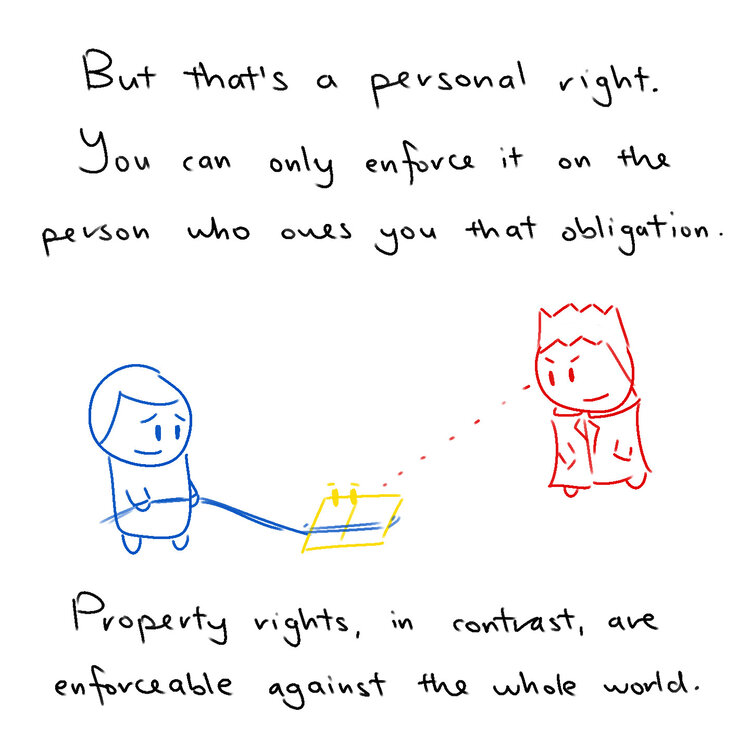 But that's a personal right.
You can only enforce it on the
person who owes you that obligation.
Property rights, in contrast, are
enforceable against the whole world.